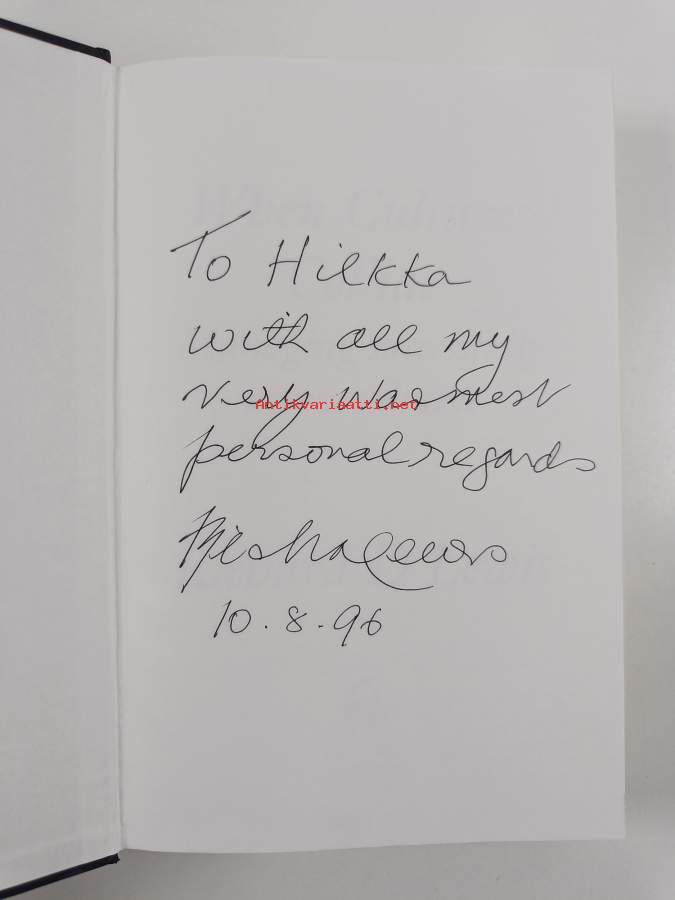 To Hilkka
with all my
very warmest
Antikvariaatti.net
personal regards
10.8.96